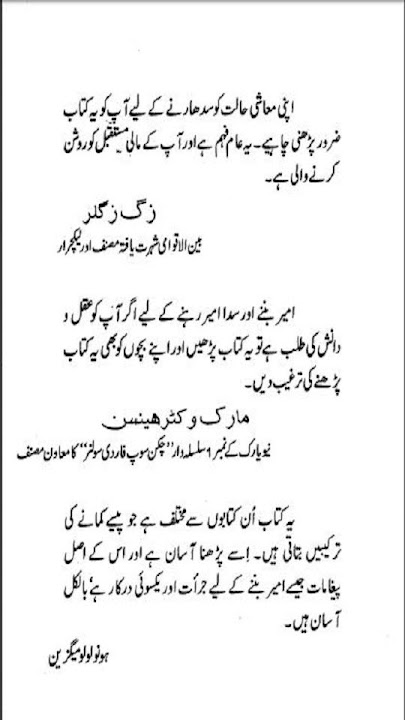 اپنی معاشی حالت کو سدھارنے کے لیے آپ کو یہ کتاب
ضرور پڑھنی چاہیے۔ یہ عام فہم ہے اور آپ کے مالی مستقبل کو روشن
کرنے والی ہے۔
زگ زگلر
بین الاقوامی شہرت یافتہ مصنف اور لیکچرار
امیر بننے اور سدا امیر رہنے کے لیے اگر آپ کو عقل و
دانش کی طلب ہے تو یہ کتاب پڑھیں اور اپنے بچوں کو بھی یہ کتاب
پڑھنے کی ترغیب دیں۔
مارک وکٹر ھینسن
نیویارک کے نمبر ۱ سلسلہ دار ”چکن سوپ فار دی سولنز“ کا معاون مصنف
یہ کتاب اُن کتابوں سے مختلف ہے جو پیسے کمانے کی
ترکیبیں بتاتی ہیں۔ اِسے پڑھنا آسان ہے اور اس کے اصل
پیغامات جیسے امیر بننے کے لیے جرأت اور یکسوئی درکار ہے‘ بالکل
آسان ہیں۔
ہونولولو میگزین